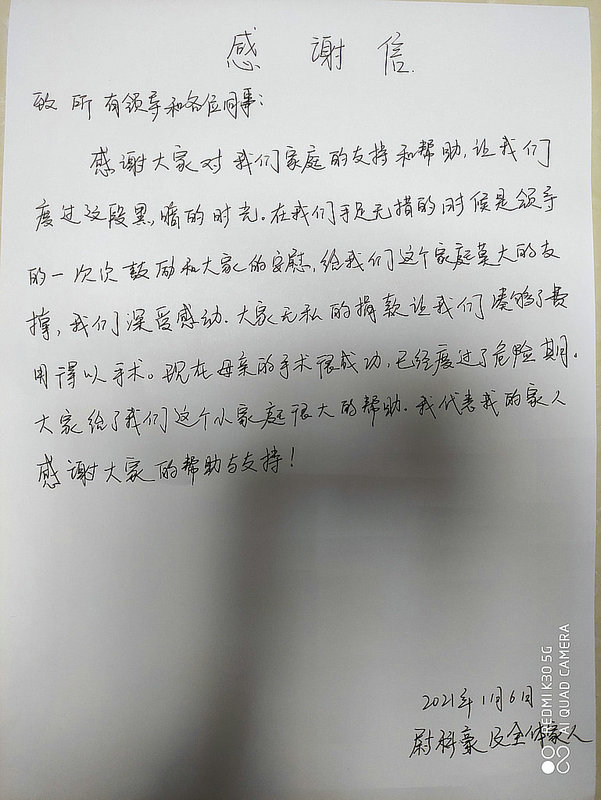 感谢信
致所有领导和各位同事:
感谢大家对我们家庭的支持和帮助,让我们
度过这段黑暗的时光。在我们手足无措的时候是领导
的一次次鼓励和大家的安慰,给我们这个家庭莫大的支
撑,我们深受感动.大家无私的捐款让我们凑够了费
用得以手术。现在母亲的手术很成功,已经度过了危险期。
大家给了我们这个小家庭很大的帮助.我代表我的家人
感谢大家的帮助与支持!
2021年11月6日
尉科豪及全体家人
REDMI K30 5G
AI QUAD CAMERA